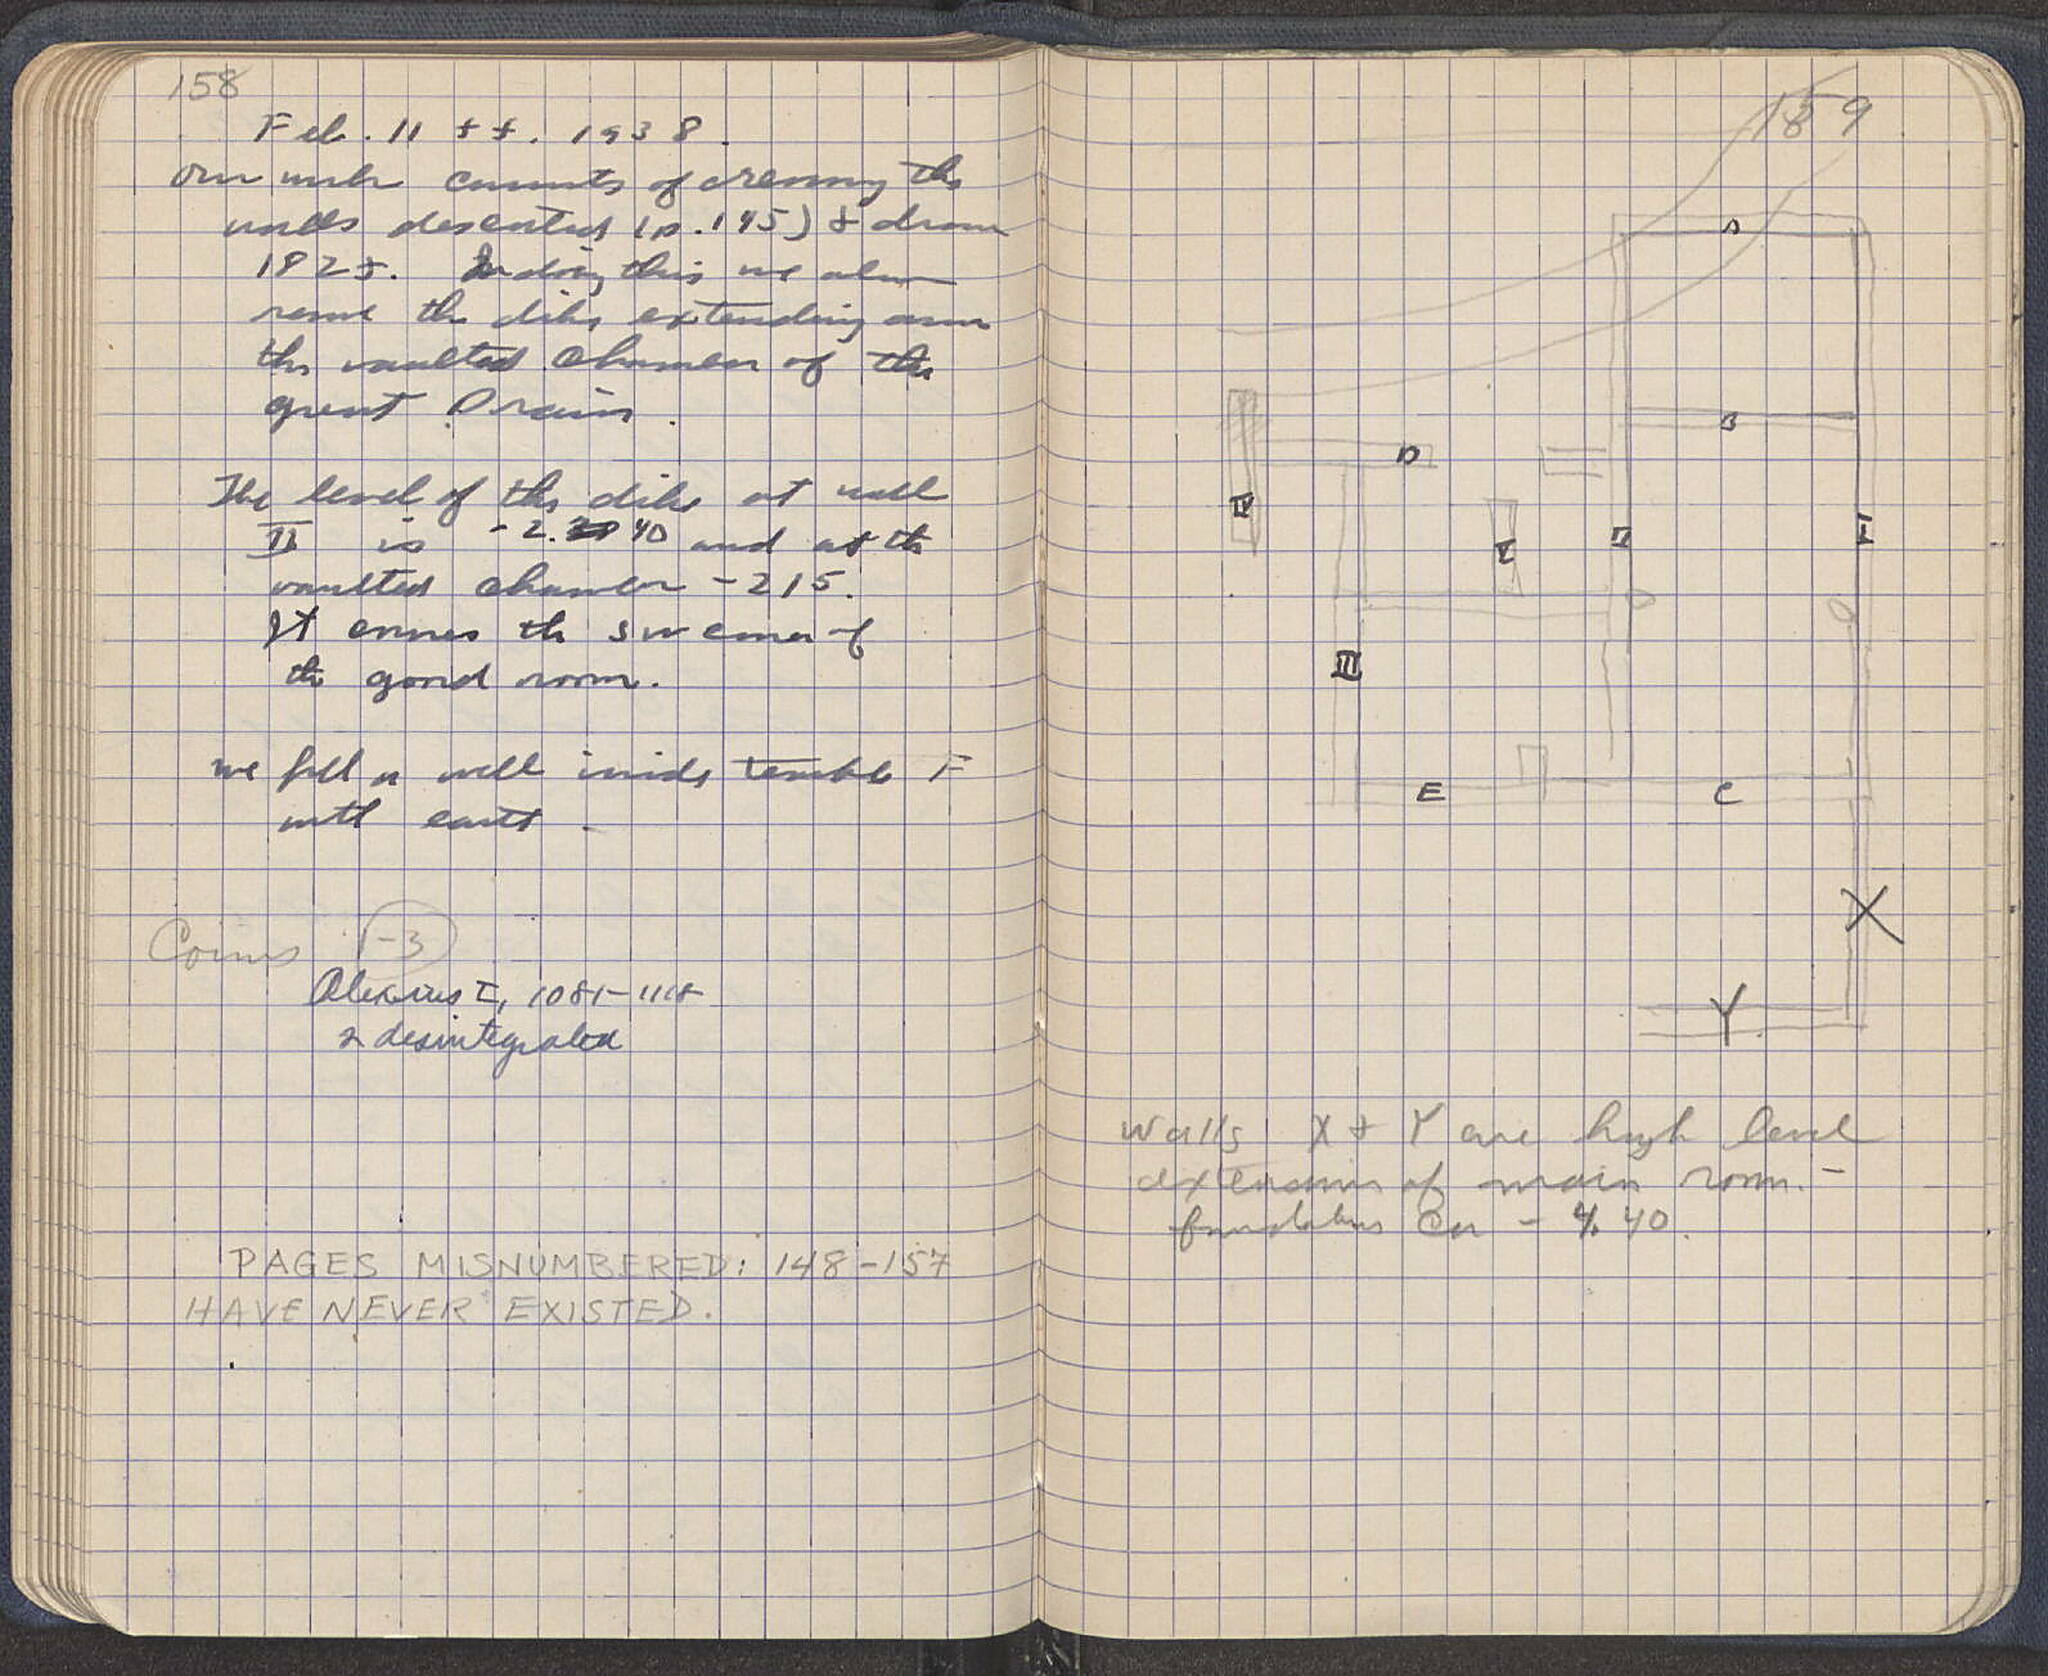 158
Feb. 11 ff. 1938.
Our work consists of cleaning the
walls described (p. 145) & drawn
182f. In doing this we also
remove the dike extending over
the vaulted chamber of the
great Drain.
The level of the dike at wall
II is -2.40 and at the
vaulted chamber -215.
It covers the SW corner of
the good room.
we fill a well inside temple F
with earth.
Coins 1-3
Alexius I, 1081-1118
2 desintegrated
PAGES MISNUMBERED: 148-157
HAVE NEVER EXISTED.
159
B
D
II
I
III
E
C
X
Y
Walls X & Y are high level
extension of main room. -
foundations Ca - 4.40.